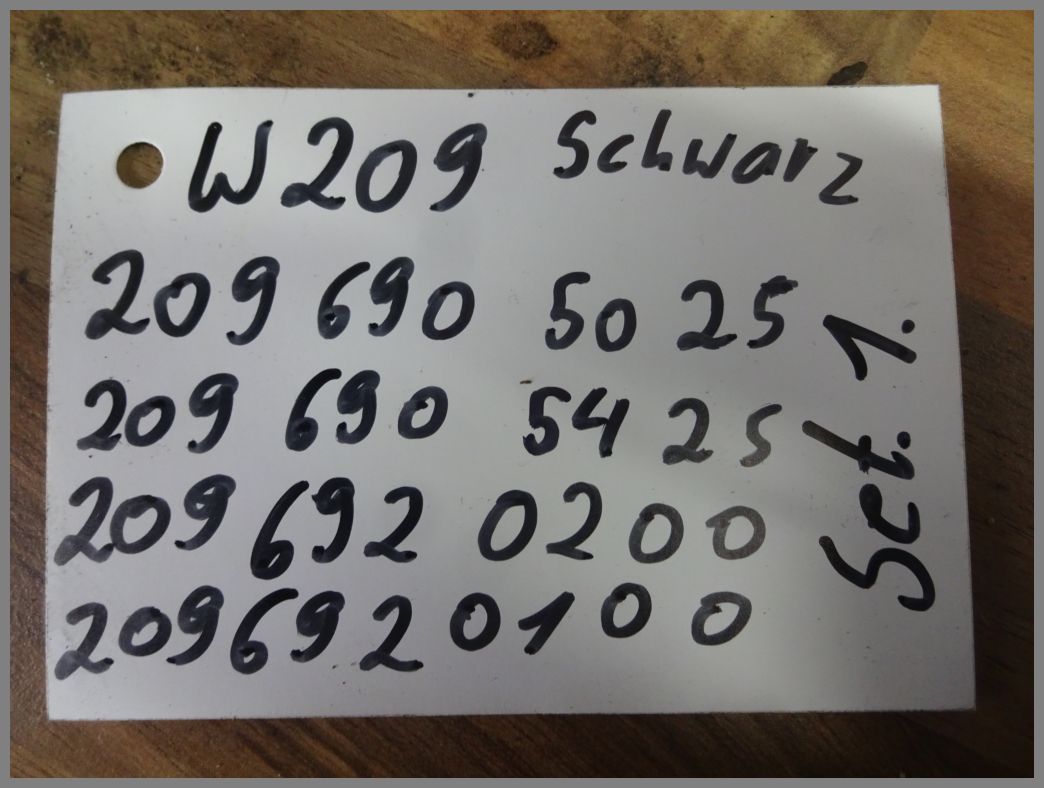 W209 Schwarz
209 690 50 25
209 690 54 25
209 692 02 00
209 692 01 00
Set. 1.